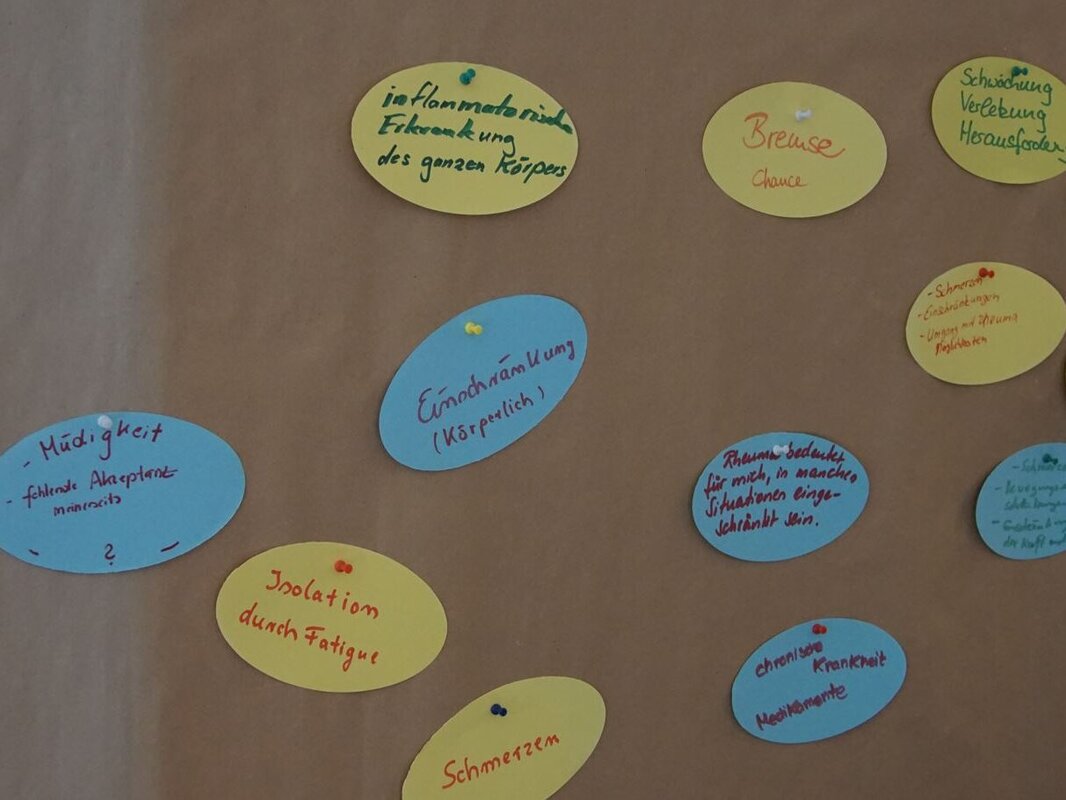 inflammatorische
Erkrankung
des ganzen Körpers
Bremse
Chance
Schwächung
Verlebung
Herausforder
- Schmerzen
- Einschränkungen
- Umgang mit Rheuma
Möglichkeiten
Einschränkung
(Körperlich)
- Müdigkeit
- fehlende Akzeptanz
meinerseits
- ? -
Rheuma bedeutet
für mich, in manchen
Situationen einge-
schränkt sein.
- Schmerze
- Bewegungse
der Kraft
Isolation
durch Fatigue
chronische
Krankheit
Medikamente
Schmerzen